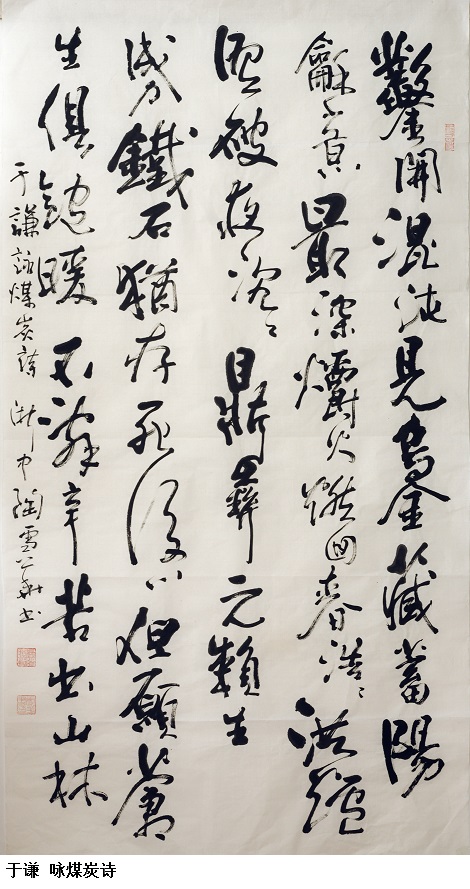 鑿開混沌見烏金藏蓄陽
龢意最深爝火燃回春浩浩洪爐
照破夜沉沉鼎彝元賴生
成力鐵石猶存死後心但願蒼
生俱飽暖不辭辛苦出山林
于謙詠煤炭詩 浙中陶雪華書
于谦 咏煤炭诗